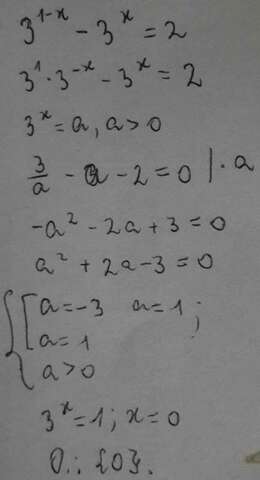 3^{1-x} - 3^x = 2
3^1 · 3^{-x} - 3^x = 2
3^x = a, a > 0
3/a - a - 2 = 0 | · a
-a² - 2a + 3 = 0
a² + 2a - 3 = 0
{ [ a = -3 a = 1 ;
a = 1
a > 0
3^x = 1 ; x = 0
O.: {0}.